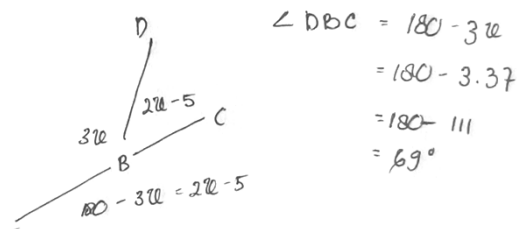 D
2x-5
3x
C
B
180-3x = 2x-5
∠DBC = 180-3x
=180-3.37
=180-111
=69°